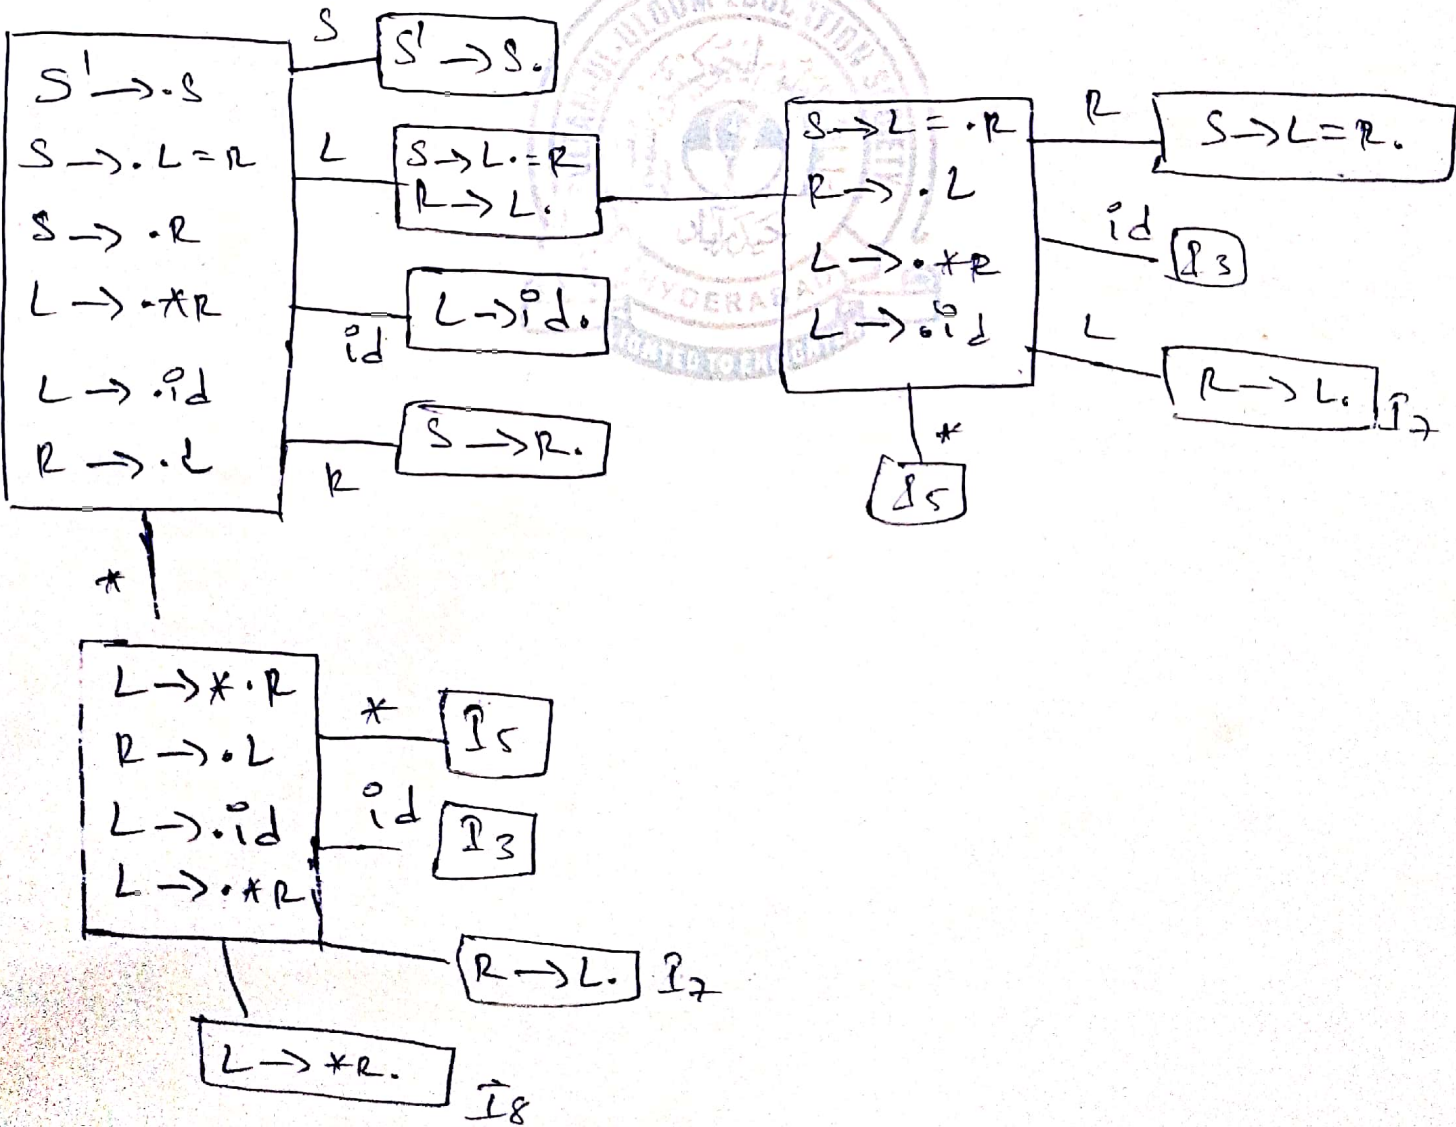 S' → .S
S → .L=R
S → .R
L → .*R
L → .id
R → .L
S
S' → S.
L
S → L.=R
R → L.
id
L → id.
R
S → R.
S → L=.R
R → .L
L → .*R
L → .id
R
S → L=R.
id
I3
L
R → L.
I7
*
I5
*
L → *.R
R → .L
L → .id
L → .*R
*
I5
id
I3
R → L.
I7
L → *R.
I8
HYDERABAD